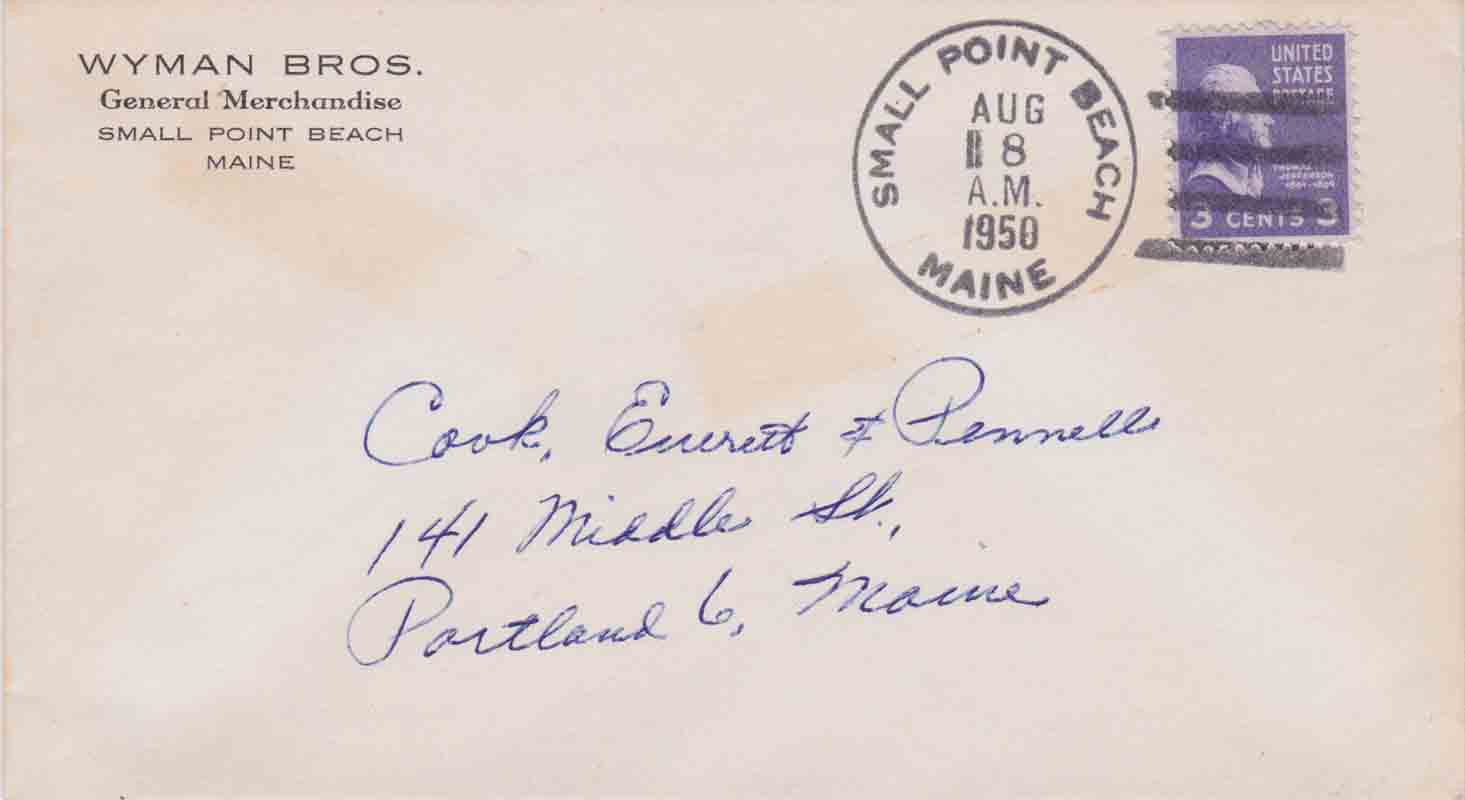 WYMAN BROS.
General Merchandise
SMALL POINT BEACH
MAINE
SMALL POINT BEACH
AUG
8
A.M.
1950
MAINE
UNITED
STATES
POSTAGE
THOMAS
JEFFERSON
1801-1809
3 CENTS 3
Cook, Everett & Pennell
141 Middle St.,
Portland 6, Maine